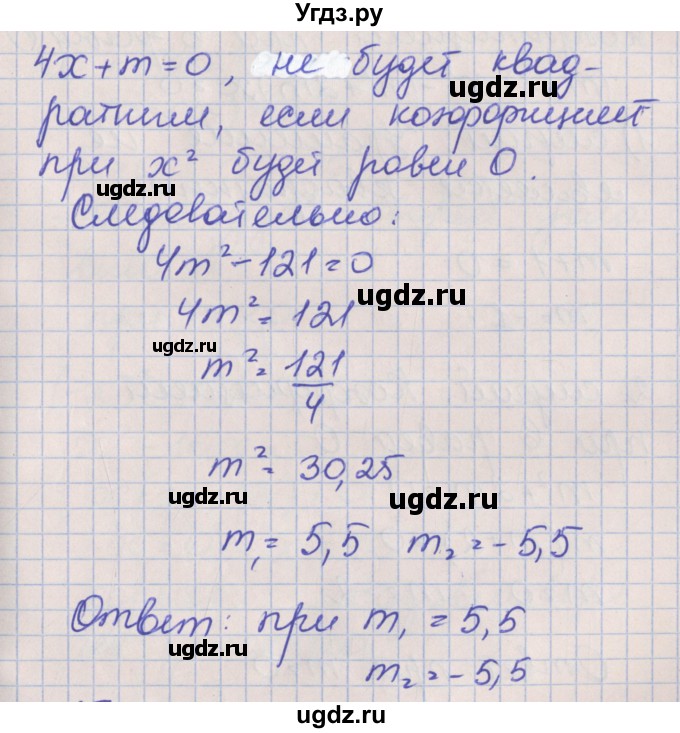 Угдз.ру
4x + m = 0, не будет квад-
ратным, если коэффициент
при x² будет равен 0.
ugdz.ru
ugdz.ru
Следовательно:
4m² - 121 = 0
4m² = 121
ugdz.ru
ugdz.ru
m² = 121/4
m² = 30,25
ugdz.ru
ugdz.ru
m₁ = 5,5 m₂ = -5,5
Ответ: при m₁ = 5,5
ugdz.ru
m₂ = -5,5
ugdz.ru